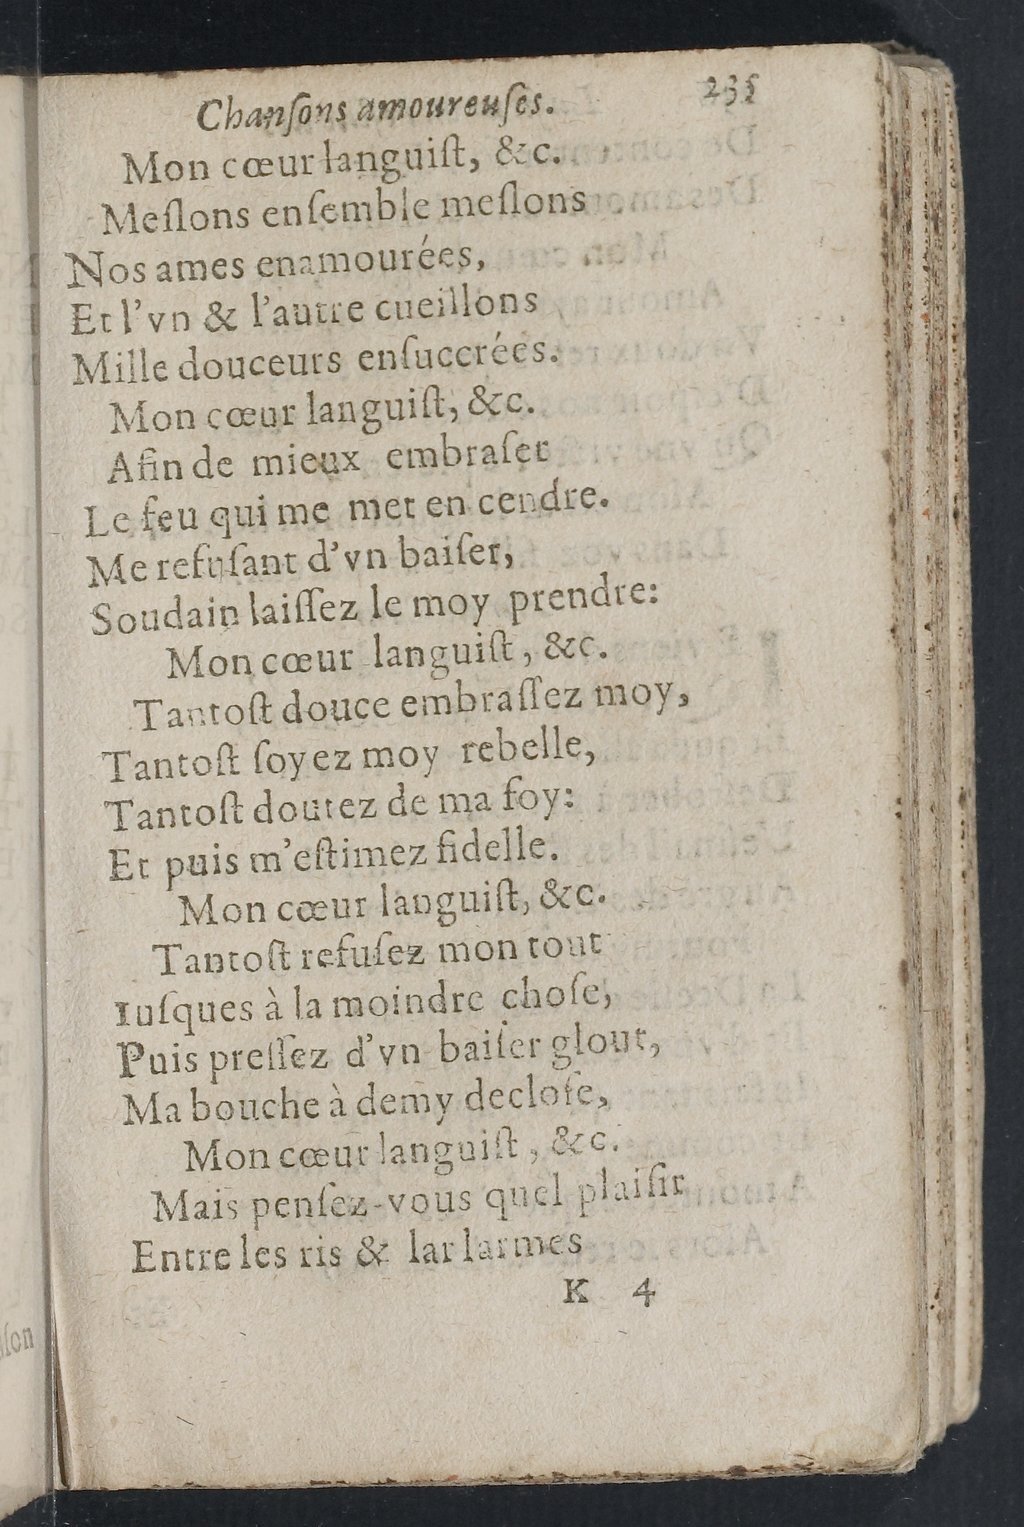 Chanſons amoureuſes. 235
Mon cœur languiſt, &c.
Meſlons enſemble meſlons
Nos ames enamourées,
Et l'vn & l'autre cueillons
Mille douceurs enſuccrées.
Mon cœur languiſt, &c.
Afin de mieux embraſer
Le feu qui me met en cendre.
Me refuſant d'vn baiſer,
Soudain laiſſez le moy prendre:
Mon cœur languiſt, &c.
Tantoſt douce embraſſez moy,
Tantoſt ſoyez moy rebelle,
Tantoſt doutez de ma foy:
Et puis m'eſtimez fidelle.
Mon cœur languiſt, &c.
Tantoſt refuſez mon tout
Iuſques à la moindre choſe,
Puis preſſez d'vn baiſer glout,
Ma bouche à demy decloſe,
Mon cœur languiſt, &c.
Mais penſez-vous quel plaiſir
Entre les ris & lar larmes
K 4